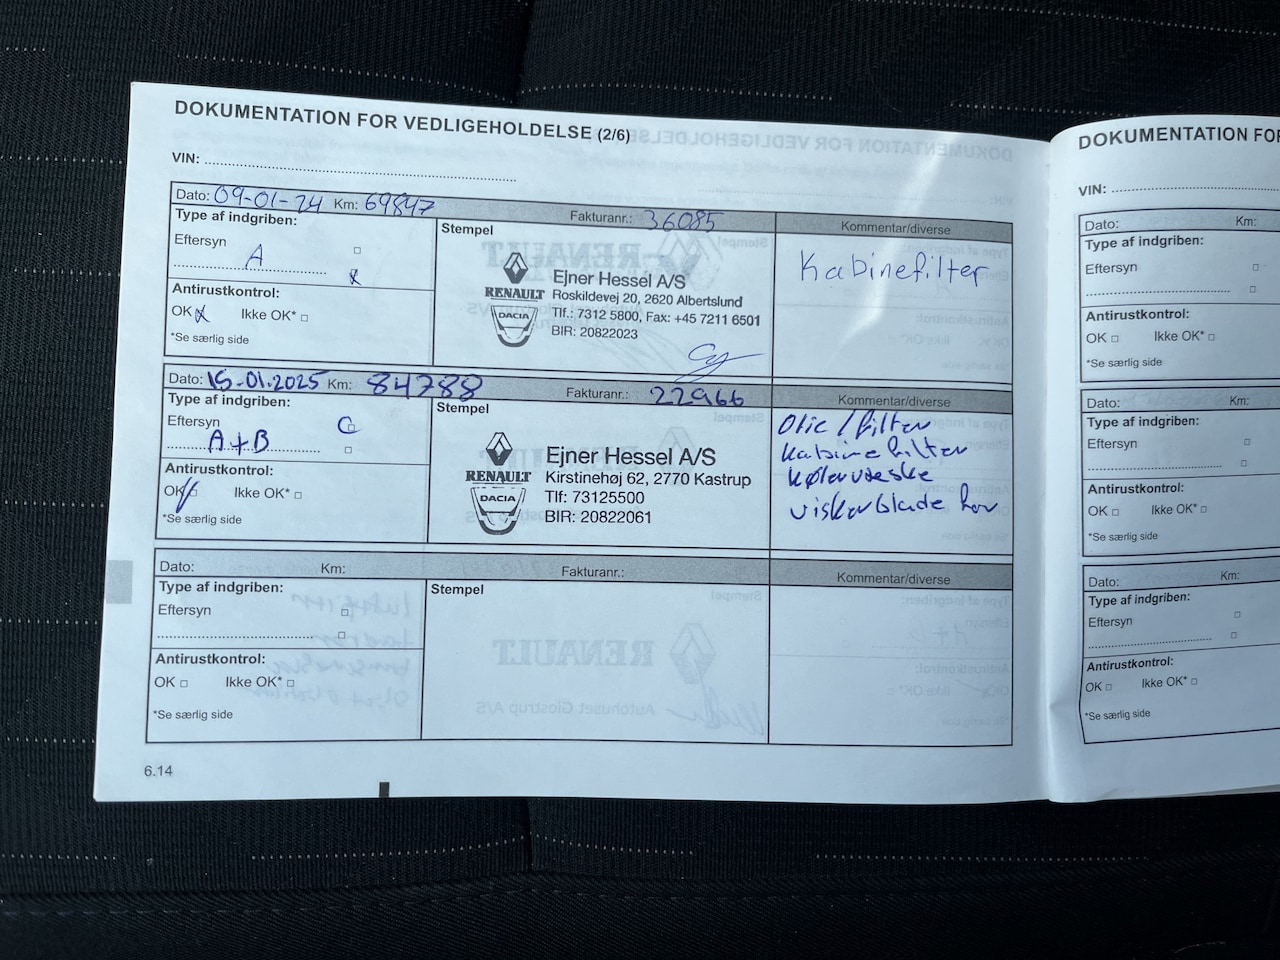 DOKUMENTATION FOR VEDLIGEHOLDELSE (2/6)
VIN:
Dato: 09-01-24 Km: 69847 Fakturanr.: 36085
Type af indgriben:
Eftersyn
A
Antirustkontrol:
OK Ikke OK*
*Se særlig side
Stempel
RENAULT
DACIA
Ejner Hessel A/S
Roskildevej 20, 2620 Albertslund
Tlf.: 7312 5800, Fax: +45 7211 6501
BIR: 20822023
Kommentar/diverse
Kabinefilter
Dato: 15-01.2025 Km: 84788 Fakturanr.: 22966
Type af indgriben:
Eftersyn
A+B
Antirustkontrol:
OK Ikke OK*
*Se særlig side
Stempel
RENAULT
DACIA
Ejner Hessel A/S
Kirstinehøj 62, 2770 Kastrup
Tlf: 73125500
BIR: 20822061
Kommentar/diverse
Olie / filter
kabinefilter
kølervæske
viskerblade
Dato: Km: Fakturanr.:
Type af indgriben:
Eftersyn
Antirustkontrol:
OK Ikke OK*
*Se særlig side
Stempel
Kommentar/diverse
6.14
DOKUMENTATION
VIN:
Dato: Km:
Type af indgriben:
Eftersyn
Antirustkontrol:
OK Ikke OK*
*Se særlig side
Dato: Km:
Type af indgriben:
Eftersyn
Antirustkontrol:
OK Ikke OK*
*Se særlig side
Dato: Km:
Type af indgriben:
Eftersyn
Antirustkontrol:
OK Ikke OK*
*Se særlig side